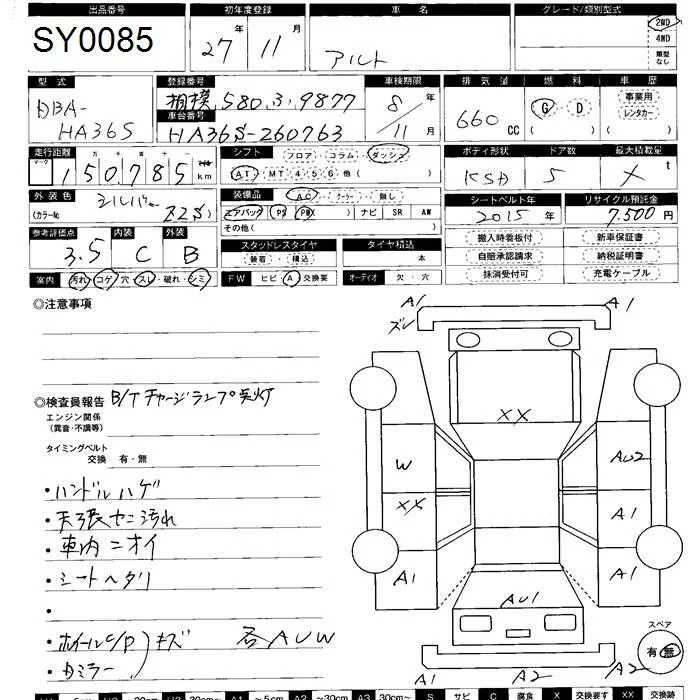 出品番号 初年度登録 車名 グレード/類別型式
SY0085 27年 11月 アルト 2WD 4WD 類型なし
型式 登録番号 車検期限 排気量 燃料 車歴
DBA-HA36S 相模 580 ふ 9877 8年 11月 660cc G・D ( ) 事業用 レンタカー ( )
車台番号
HA36S-260763
走行距離 シフト フロア・コラム・ダッシュ ボディ形状 ドア数 最大積載量
マーク 十万 万 千 百 十 一
150,785 km AT・MT 4・5・6 他( ) 5 X t
外装色 装備品 AC・クーラー・無し シートベルト年 リサイクル預託金
シルバー (カラーNo Z2S) エアバッグ( ) PS PW ナビ SR AW 2015年 7,500円
その他( )
参考評価点 内装 外装 スタッドレスタイヤ タイヤ積込 搬入時看板付 新車保証書
3.5 C B 装着・積込 本 自賠承認請求 納税証明書
室内 汚れ・コゲ・穴・スレ・破れ・シミ FW ヒビ・A・交換要 オーディオ 欠・穴 抹消受付可 充電ケーブル
◎注意事項
A1 A1
ズレ
◎検査員報告 B/Tチャージランプ点灯
エンジン関係
(異音・不調等)
タイミングベルト
交換 有・無
XX
W AU2
XX A1
A1 A1
AU1
・ハンドルハゲ
・天張セニ汚れ
・車内ニオイ
・シートヘタリ
・
・ホイールC/P キズ 各AUW
・ミラー
スペア
有・無
A1 A2 A2